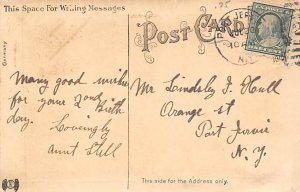 This Space For Writing Messages
Post Card
Germany
Many good wishes
for your 22nd Birth
day.
Lovingly
Aunt Nell
Mr. Lindsley F. Hull
Orange st
Port Jervis
N. Y.
This side for the Address only.